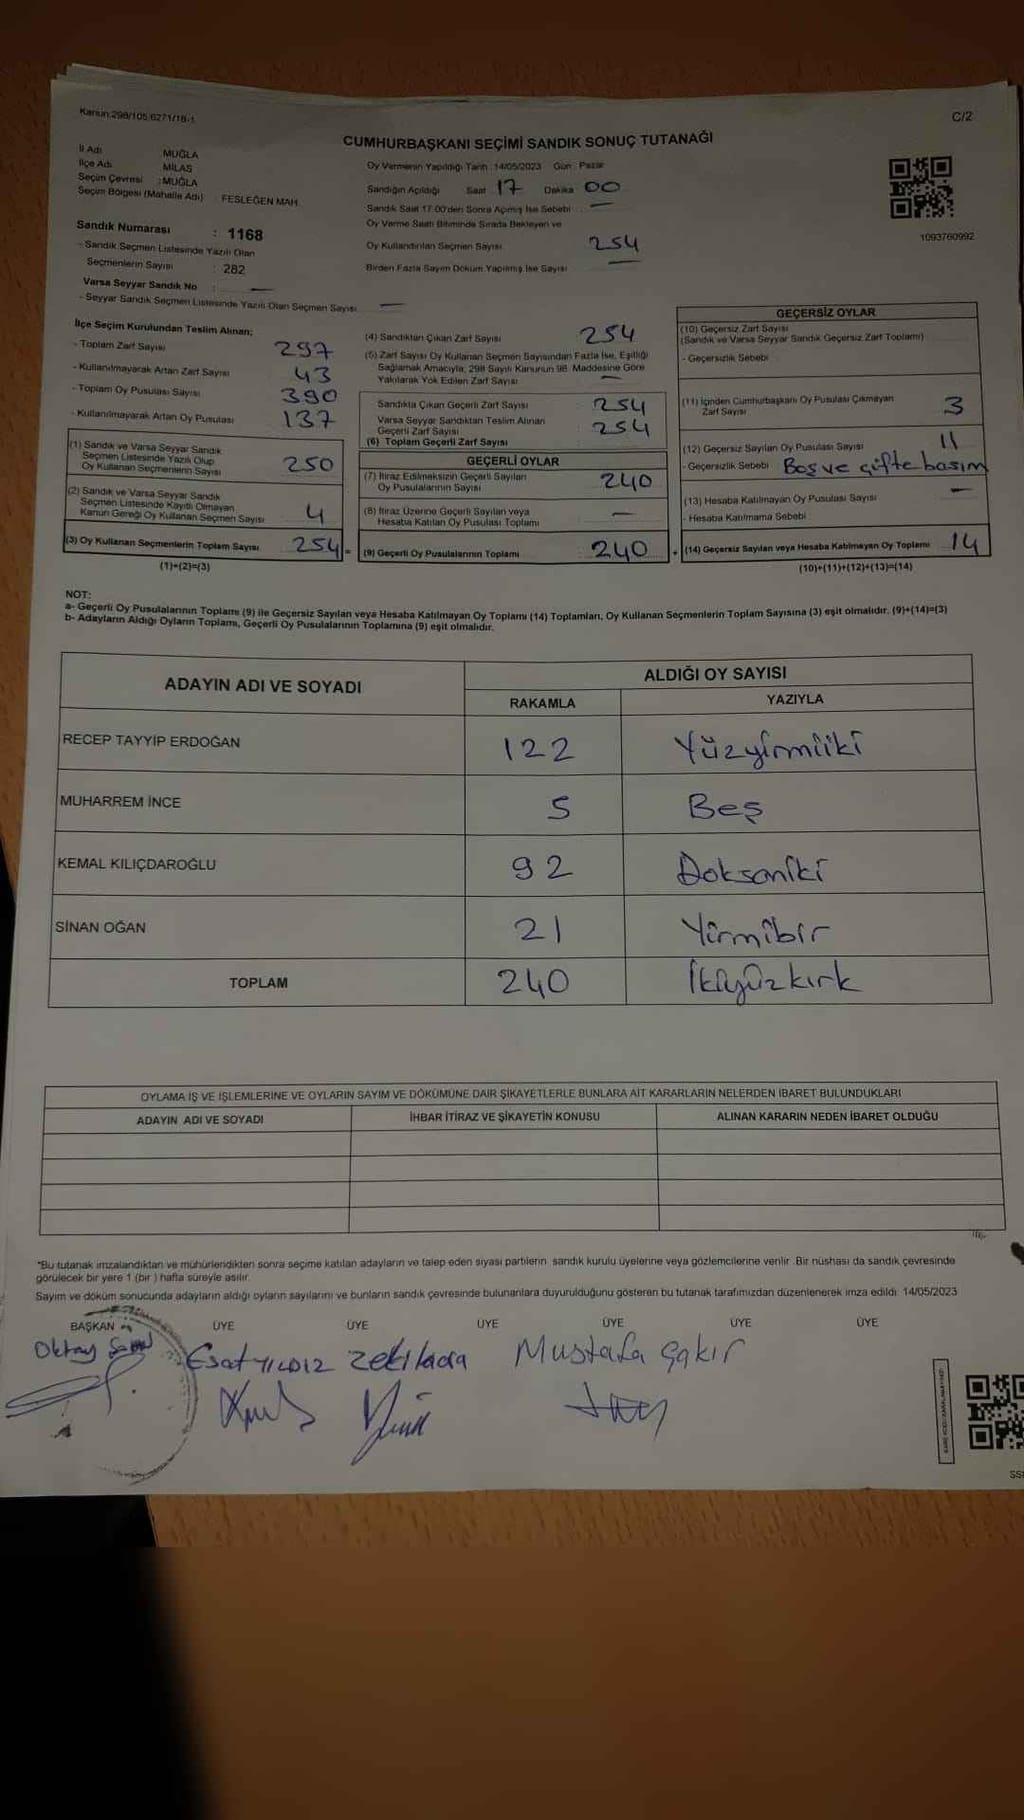 Kanun:298/105,6271/18-1
C/2
CUMHURBAŞKANI SEÇİMİ SANDIK SONUÇ TUTANAĞI
İl Adı MUĞLA
İlçe Adı MİLAS
Seçim Çevresi :MUĞLA
Seçim Bölgesi (Mahalle Adı) FESLEĞEN MAH.
Oy Vermenin Yapıldığı Tarih :14/05/2023 Gün : Pazar
Sandığın Açıldığı Saat 17 Dakika 00
Sandık Saat 17:00'den Sonra Açımış İse Sebebi —
Oy Verme Saati Bitiminde Sırada Bekleyen ve
Oy Kullandırılan Seçmen Sayısı 254
Birden Fazla Sayım Döküm Yapılmış İse Sayısı —
1093760992
Sandık Numarası : 1168
- Sandık Seçmen Listesinde Yazılı Olan
Seçmenlerin Sayısı : 282
Varsa Seyyar Sandık No : —
- Seyyar Sandık Seçmen Listesinde Yazılı Olan Seçmen Sayısı —
İlçe Seçim Kurulundan Teslim Alınan;
- Toplam Zarf Sayısı 297
- Kullanılmayarak Artan Zarf Sayısı 43
- Toplam Oy Pusulası Sayısı 390
- Kullanılmayarak Artan Oy Pusulası 137
(1) Sandık ve Varsa Seyyar Sandık
Seçmen Listesinde Yazılı Olup
Oy Kullanan Seçmenlerin Sayısı 250
(2) Sandık ve Varsa Seyyar Sandık
Seçmen Listesinde Kayıtlı Olmayan
Kanun Gereği Oy Kullanan Seçmen Sayısı 4
(3) Oy Kullanan Seçmenlerin Toplam Sayısı 254 =
(1)+(2)=(3)
(4) Sandıktan Çıkan Zarf Sayısı 254
(5) Zarf Sayısı Oy Kullanan Seçmen Sayısından Fazla İse, Eşitliği
Sağlamak Amacıyla, 298 Sayılı Kanunun 98. Maddesine Göre
Yakılarak Yok Edilen Zarf Sayısı —
Sandıkta Çıkan Geçerli Zarf Sayısı 254
Varsa Seyyar Sandıktan Teslim Alınan
Geçerli Zarf Sayısı 254
(6) Toplam Geçerli Zarf Sayısı
GEÇERLİ OYLAR
(7) İtiraz Edilmeksizin Geçerli Sayılan
Oy Pusulalarının Sayısı 240
(8) İtiraz Üzerine Geçerli Sayılan veya
Hesaba Katılan Oy Pusulası Toplamı —
(9) Geçerli Oy Pusulalarının Toplamı 240 +
GEÇERSİZ OYLAR
(10) Geçersiz Zarf Sayısı
(Sandık ve Varsa Seyyar Sandık Geçersiz Zarf Toplamı)
- Geçersizlik Sebebi
(11) İçinden Cumhurbaşkanı Oy Pusulası Çıkmayan
Zarf Sayısı 3
(12) Geçersiz Sayılan Oy Pusulası Sayısı 11
- Geçersizlik Sebebi Boş ve çifte basım
(13) Hesaba Katılmayan Oy Pusulası Sayısı —
- Hesaba Katılmama Sebebi
(14) Geçersiz Sayılan veya Hesaba Katılmayan Oy Toplamı 14
(10)+(11)+(12)+(13)=(14)
NOT:
a- Geçerli Oy Pusulalarının Toplamı (9) ile Geçersiz Sayılan veya Hesaba Katılmayan Oy Toplamı (14) Toplamları, Oy Kullanan Seçmenlerin Toplam Sayısına (3) eşit olmalıdır. (9)+(14)=(3)
b- Adayların Aldığı Oyların Toplamı, Geçerli Oy Pusulalarının Toplamına (9) eşit olmalıdır.
ADAYIN ADI VE SOYADI
ALDIĞI OY SAYISI
RAKAMLA YAZIYLA
RECEP TAYYİP ERDOĞAN 122 Yüzyirmiiki
MUHARREM İNCE 5 Beş
KEMAL KILIÇDAROĞLU 92 Doksaniki
SİNAN OĞAN 21 Yirmibir
TOPLAM 240 İkiyüzkırk
OYLAMA İŞ VE İŞLEMLERİNE VE OYLARIN SAYIM VE DÖKÜMÜNE DAİR ŞİKAYETLERLE BUNLARA AİT KARARLARIN NELERDEN İBARET BULUNDUKLARI
ADAYIN ADI VE SOYADI İHBAR İTİRAZ VE ŞİKAYETİN KONUSU ALINAN KARARIN NEDEN İBARET OLDUĞU
*Bu tutanak imzalandıktan ve mühürlendikten sonra seçime katılan adayların ve talep eden siyasi partilerin sandık kurulu üyelerine veya gözlemcilerine verilir. Bir nüshası da sandık çevresinde
görülecek bir yere 1 (bir ) hafta süreyle asılır.
Sayım ve döküm sonucunda adayların aldığı oyların sayılarını ve bunların sandık çevresinde bulunanlara duyurulduğunu gösteren bu tutanak tarafımızdan düzenlenerek imza edildi. 14/05/2023
BAŞKAN ÜYE ÜYE ÜYE ÜYE ÜYE ÜYE
Oktay Esat YILDIZ Mustafa Çakır